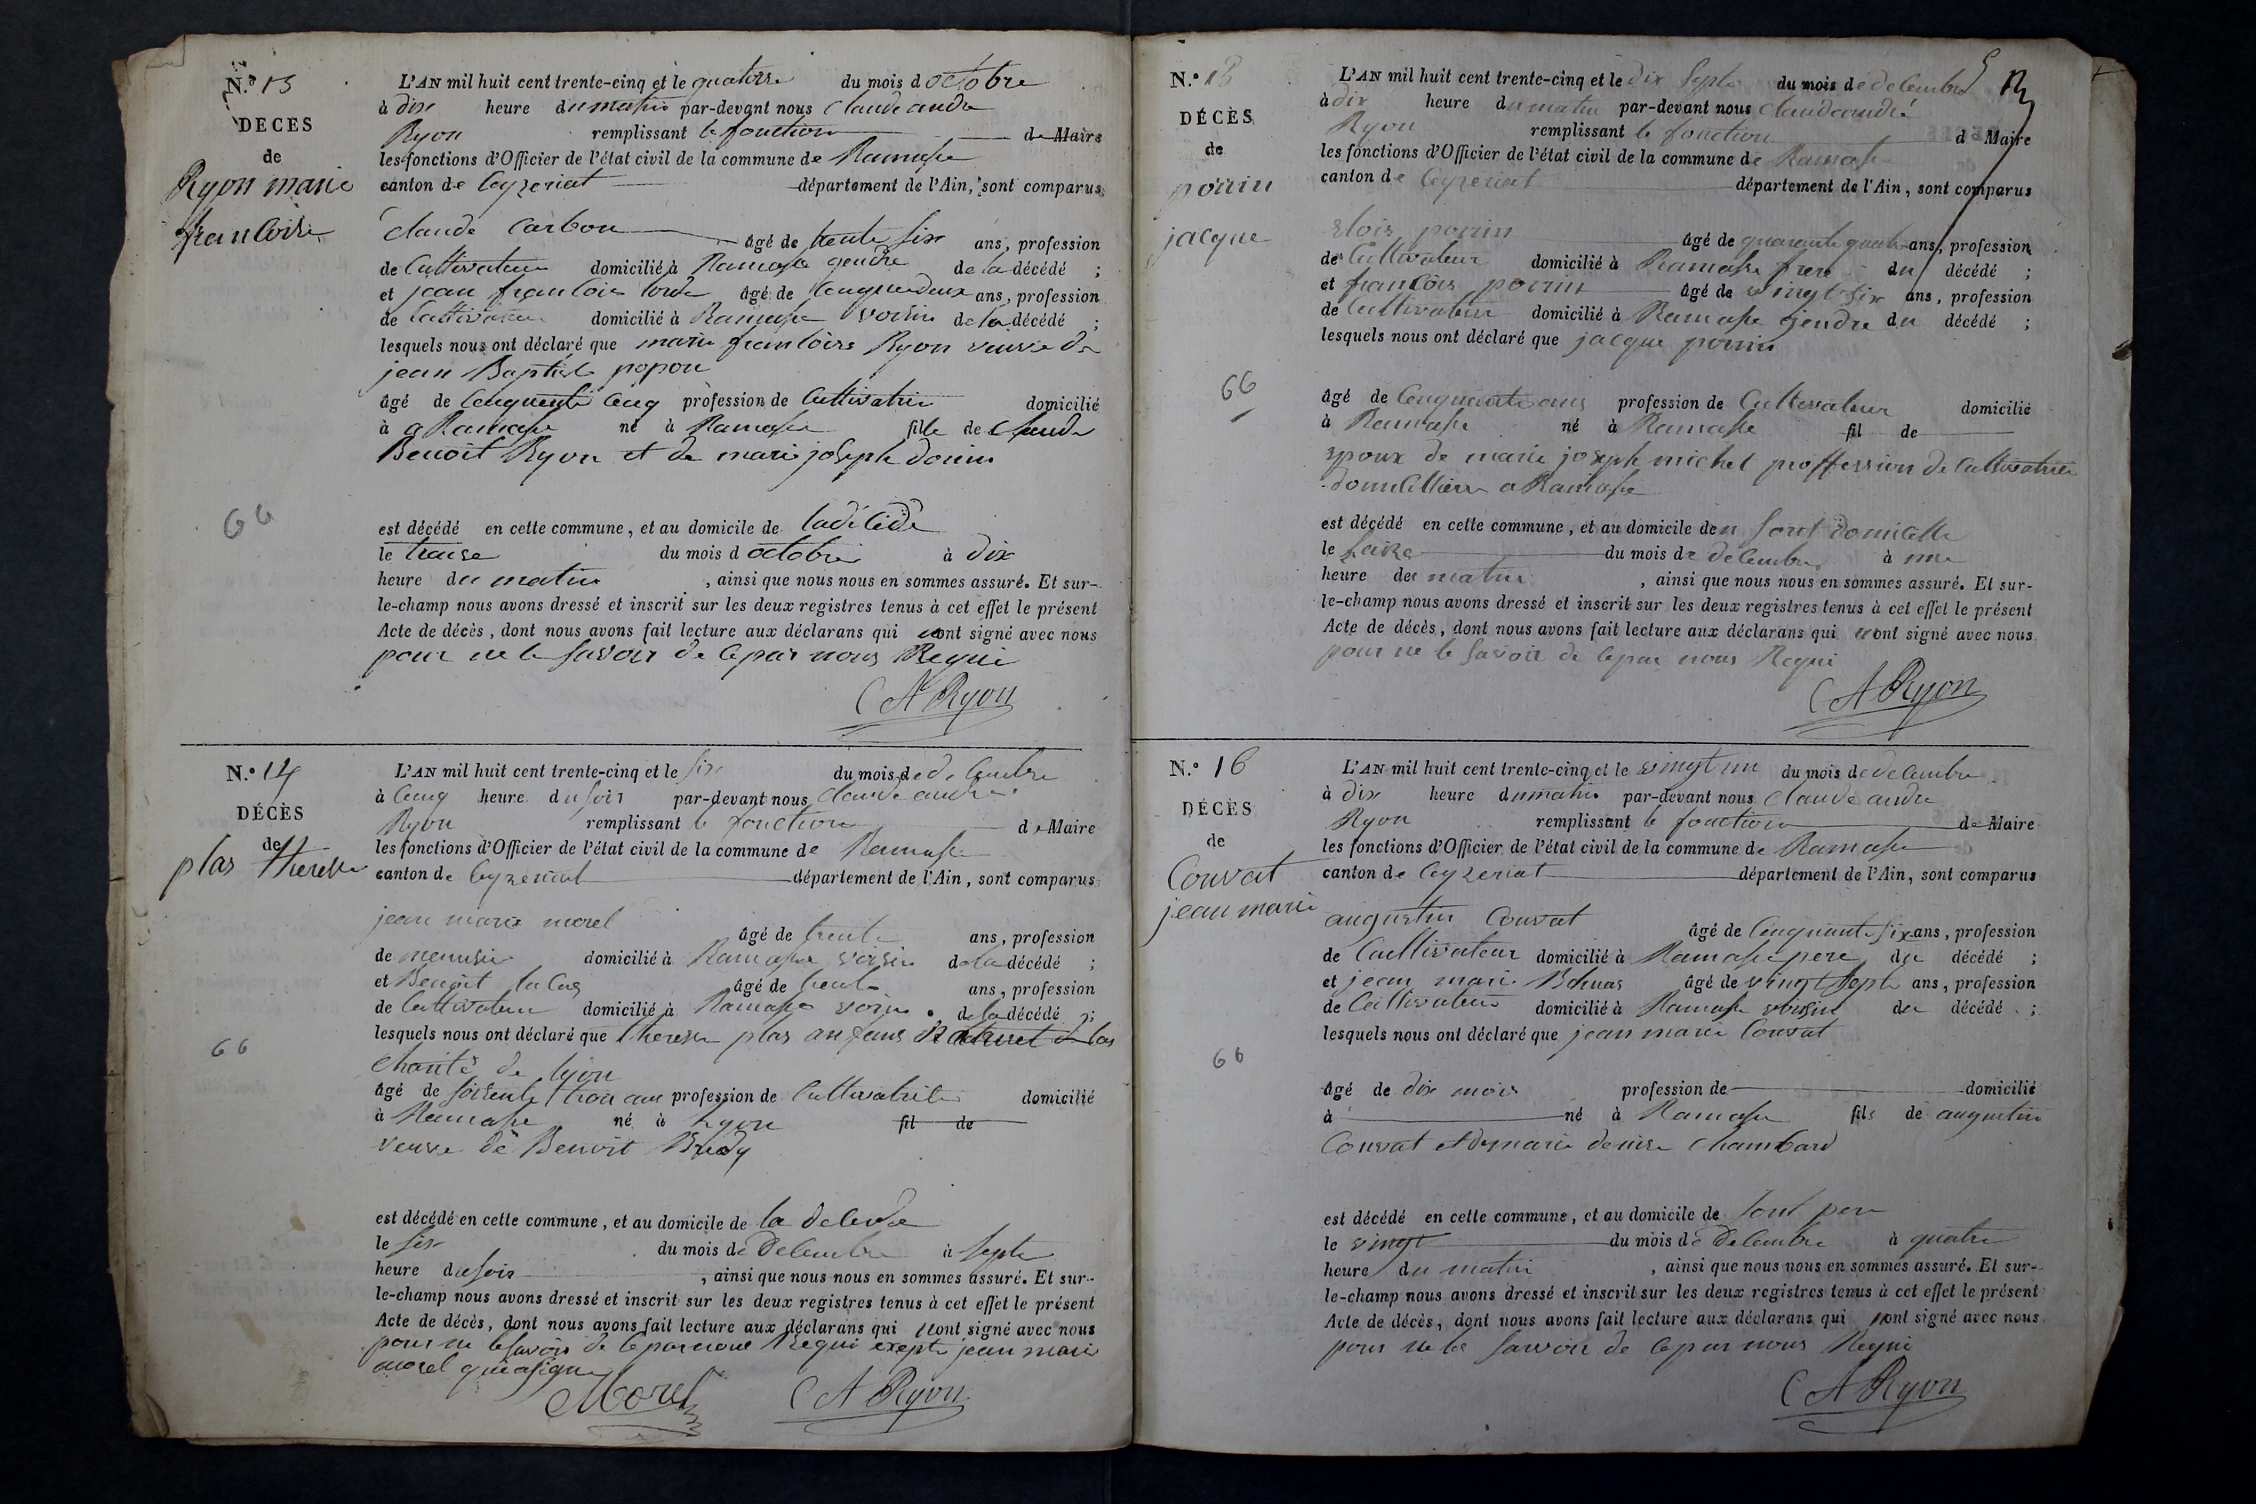 N.º 13
DECES
de
Ryon marie
francoise
L'AN mil huit cent trente-cinq et le quatorse du mois d octobre
à dix heure du matin par-devant nous claude andre
Ryon remplissant le fonction de Maire
les fonctions d'Officier de l'état civil de la commune de Ramasse
canton de Ceyzeriat département de l'Ain, sont comparus
claude Carbon âgé de trente six ans, profession
de Cultivateur domicilié à Ramasse gendre de la décédé ;
et jean francois âgé de ans, profession
de Cultivateur domicilié à Ramasse voisin de la décédé ;
lesquels nous ont déclaré que marie francoise Ryon veuve de
jean Baptiste popon
âgé de Cenquente Cenq profession de Cultivatrice domicilié
à a Ramasse né à Ramasse fille de claude
Benoit Ryon et de marie joseph
est décédé en cette commune, et au domicile de ladécédé
le traise du mois d octobre à dix
heure du matin , ainsi que nous nous en sommes assuré. Et sur-
le-champ nous avons dressé et inscrit sur les deux registres tenus à cet effet le présent
Acte de décès, dont nous avons fait lecture aux déclarans qui nont signé avec nous
pour ne le savoir de ce par nous Requi
CA Ryon
66
N.º 14
DÉCÈS
de
plas therese
L'AN mil huit cent trente-cinq et le six du mois de decembre
à Cenq heure du soir par-devant nous claude andre
Ryon remplissant le fonction de Maire
les fonctions d'Officier de l'état civil de la commune de Ramasse
canton de Ceyzeriat département de l'Ain, sont comparus
jean marie morel âgé de trente ans, profession
de menusier domicilié à Ramasse voisin de la décédé ;
et Benoit âgé de trente ans, profession
de Cultivateur domicilié à Ramasse voisin de la décédé ;
lesquels nous ont déclaré que therese plas enfans de la
charité de lyon
âgé de soisente trois ans profession de Cultivatrice domicilié
à Ramasse né à Lyon fil de
veuve de Benoit
est décédé en cette commune, et au domicile de la decede
le six du mois de Decembre à septe
heure du soir , ainsi que nous nous en sommes assuré. Et sur-
le-champ nous avons dressé et inscrit sur les deux registres tenus à cet effet le présent
Acte de décès, dont nous avons fait lecture aux déclarans qui nont signé avec nous
pour ne le savoir de ce par nous Requi exepte jean marie
morel qui a signe
Morel CA Ryon
66
N.º 15
DÉCÈS
de
porrin
jacque
L'AN mil huit cent trente-cinq et le dix septe du mois de decembre
à dix heure du matin par-devant nous claude andré
Ryon remplissant le fonction de Maire
les fonctions d'Officier de l'état civil de la commune de Ramasse
canton de Ceyzeriat département de l'Ain, sont comparus
elois porrin âgé de quarante quatre ans, profession
de Cultivateur domicilié à Ramasse frere du décédé ;
et francois porrin âgé de vingt six ans, profession
de Cultivateur domicilié à Ramasse gendre du décédé ;
lesquels nous ont déclaré que jacque porrin
âgé de Cenquante ans profession de Cultivateur domicilié
à Ramasse né à Ramasse fil de
epoux de marie joseph michel proffession de Cultivatrice
domicilliere a Ramasse
est décédé en cette commune, et au domicile de n sont domicille
le seize du mois de decembre à une
heure du matin , ainsi que nous nous en sommes assuré. Et sur-
le-champ nous avons dressé et inscrit sur les deux registres tenus à cet effet le présent
Acte de décès, dont nous avons fait lecture aux déclarans qui nont signé avec nous
pour ne le savoir de ce par nous Requi
CA Ryon
66
N.º 16
DÉCÈS
de
Convat
jean marie
L'AN mil huit cent trente-cinq et le vingt un du mois de decembre
à dix heure du matin par-devant nous claude andre
Ryon remplissant le fonction de Maire
les fonctions d'Officier de l'état civil de la commune de Ramasse
canton de Ceyzeriat département de l'Ain, sont comparus
augustin Convat âgé de Cenquante six ans, profession
de Cultivateur domicilié à Ramasse pere du décédé ;
et jean marie âgé de vingt septe ans, profession
de Cultivateur domicilié à Ramasse voisin du décédé ;
lesquels nous ont déclaré que jean marie Convat
âgé de dix mois profession de domicilié
à né à Ramasse fils de augustin
Convat et de marie denise chambard
est décédé en cette commune, et au domicile de sont pere
le vingt du mois de decembre à quatre
heure du matin , ainsi que nous nous en sommes assuré. Et sur-
le-champ nous avons dressé et inscrit sur les deux registres tenus à cet effet le présent
Acte de décès, dont nous avons fait lecture aux déclarans qui nont signé avec nous
pour ne le savoir de ce par nous Requi
CA Ryon
66